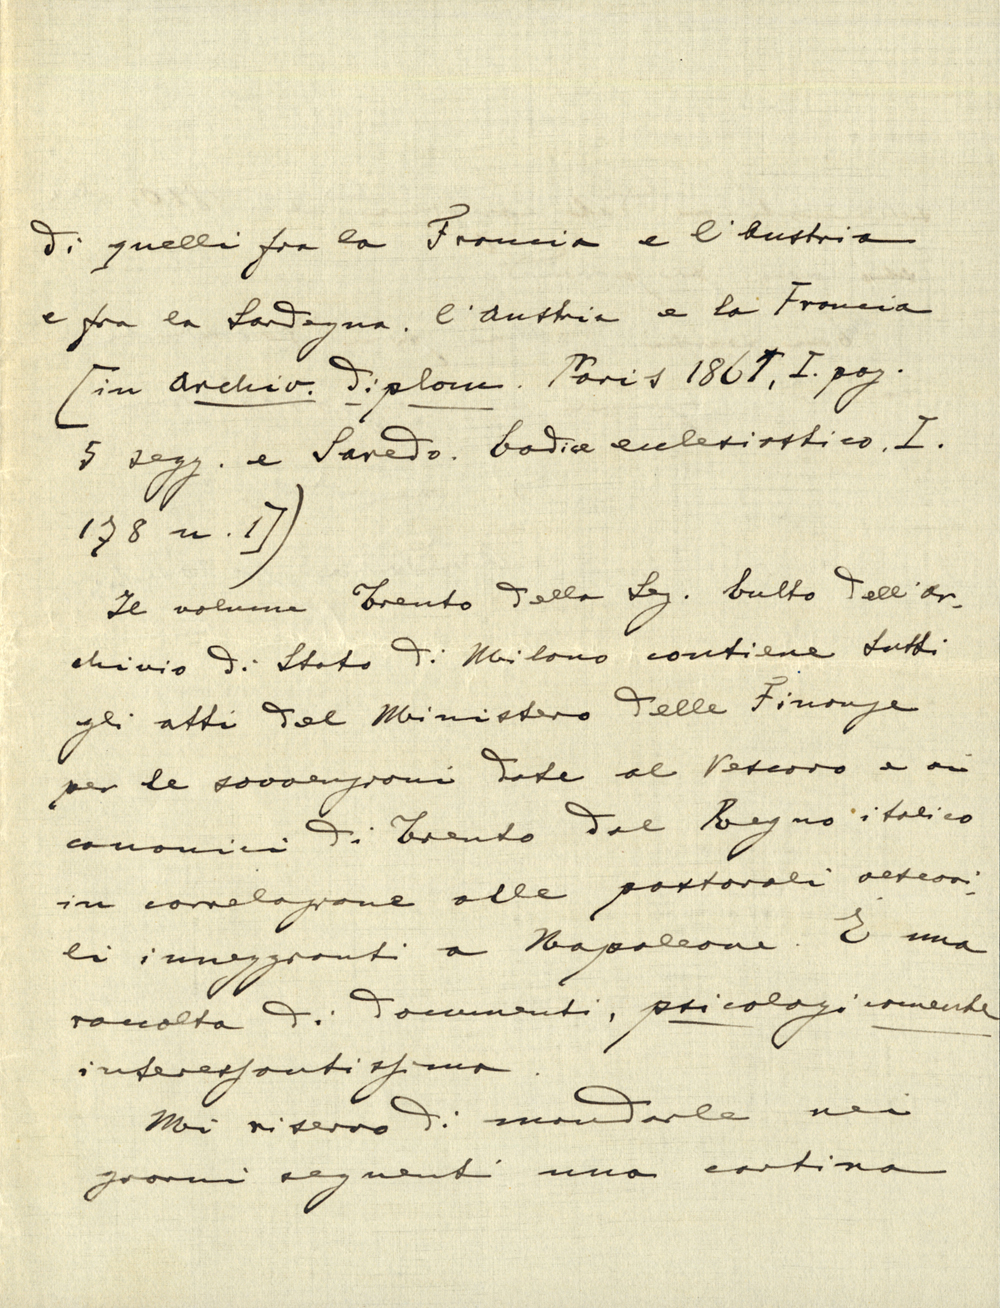 di quelli fra la Francia e l'Austria
e fra la Sardegna, l'Austria e la Francia
[in Archiv. diplom. Paris 1861, I. pag.
5 segg. e Saredo. Codice ecclesiastico, I.
178 n. 1])
Il volume Trento della Sez. Culto dell'Ar-
chivio di Stato di Milano contiene tutti
gli atti del Ministero delle Finanze
per le sovvenzioni date al Vescovo e ai
canonici di Trento dal Regno italico
in correlazione alle pastorali vescovi-
li inneggianti a Napoleone. È una
raccolta di documenti, psicologicamente
interessantissima.
Mi riservo di mandarle nei
giorni seguenti una cartina